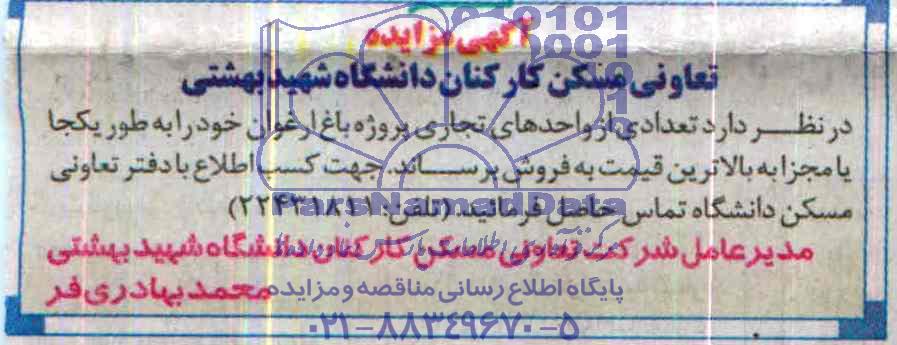 آگهی مزایده
تعاونی مسکن کارکنان دانشگاه شهید بهشتی
در نظر دارد تعدادی از واحدهای تجاری پروژه باغ ارغوان خود را به طور یکجا
یا مجزا به بالاترین قیمت به فروش برساند. جهت کسب اطلاع با دفتر تعاونی
مسکن دانشگاه تماس حاصل فرمائید. (تلفن: ۲۲۴۳۱۸۱۱)
مدیر عامل شرکت تعاونی مسکن کارکنان دانشگاه شهید بهشتی
محمد بهادری فر
پایگاه اطلاع رسانی مناقصه و مزایده
۰۲۱-۸۸۳۴۹۶۷۰-۵